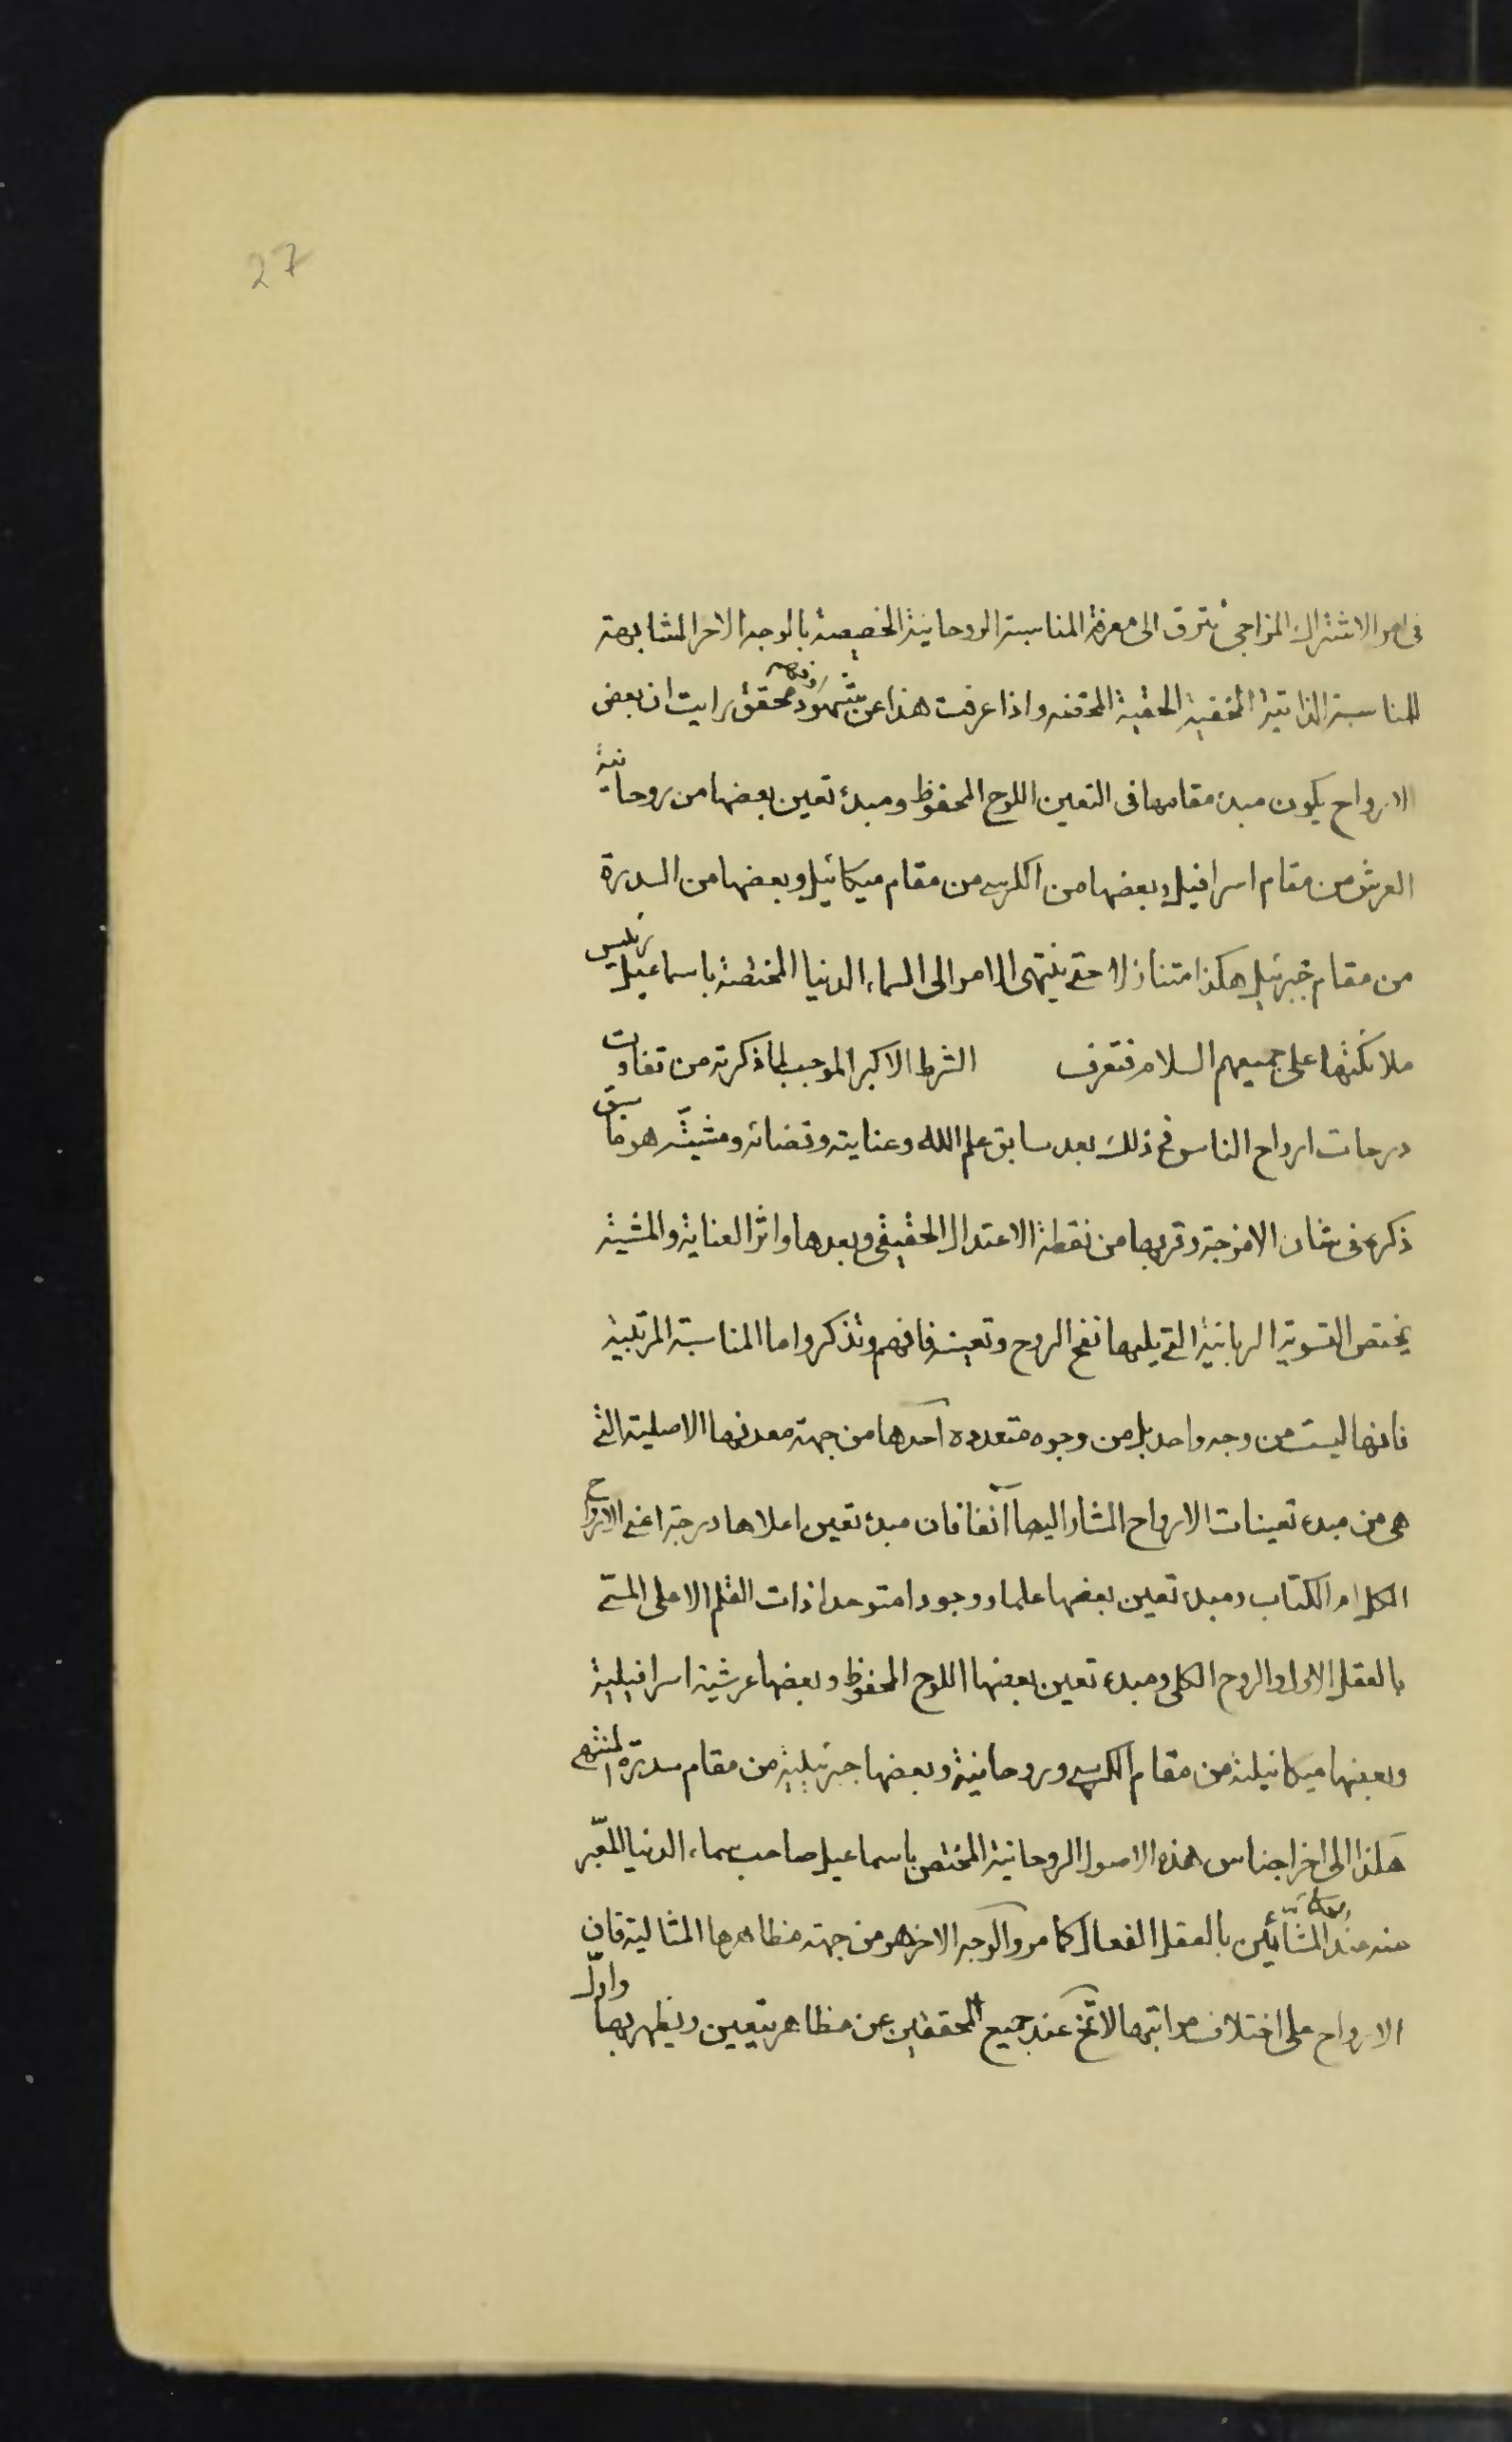 27
فى امر الاشتراك المزاجى تترق الى معرفة المناسبة الروحانية الخصيصة بالوجه الاخر المشابهة
للمناسبة الذاتية الخفية الحقية المحققه واذا عرفت هذا عن شهود محقق رايت ان بعض
الارواح يكون مبدء مقامها فى التعين اللوح المحفوظ ومبدء تعين بعضها من روحانية
العرش من مقام اسرافيل وبعضها من الكرسى من مقام ميكائيل وبعضها من السدرة
من مقام جبرئيل هكذا متنازلا حتى ينتهى الامر الى السماء الدنيا المختصة باسماعيل رئيس
ملائكتها على جميعهم السلام فتعرف الشرط الاكبر الموجب لما ذكرته من تفاوت
درجات ارواح الناس فى ذلك بعد سابق علم الله وعنايته وقضائه ومشيته هو ما سبق
ذكره فى شان الامزجة وقربها من نقطة الاعتدال الحقيقى وبعدها واثر العناية والمشية
يختص التسوية الربانية التى يليها نفخ الروح وتعينه فافهم وتذكر واما المناسبة المرتبية
فانها ليست من وجه واحد بل من وجوه متعدده احدها من جهة معدنها الاصلية التى
هى من مبدء تعينات الارواح المشار اليها آنفا فان مبدء تعين اعلاها درجة اعنى الارواح
الكل ام الكتاب ومبدء تعين بعضها علما ووجودا متوحدا ذات القلم الاعلى المسمى
بالعقل الاول والروح الكلى ومبدء تعين بعضها اللوح المحفوظ وبعضها عرشية اسرافيلية
وبعضها ميكائيلية من مقام الكرسى وروحانية وبعضها جبرئيلية من مقام سدرة المنتهى
هكذا الى اخر اجناس هذه الاصول الروحانية المختص باسماعيل صاحب سماء الدنيا المعبر
عنه عند المشائين بالعقل الفعال كما مر والوجه الاخر هو من جهة مظاهرها المثالية فان
الارواح على اختلاف مراتبها لا تخ عند جميع المحققين عن مظاهر يتعين ويظهر بها واول